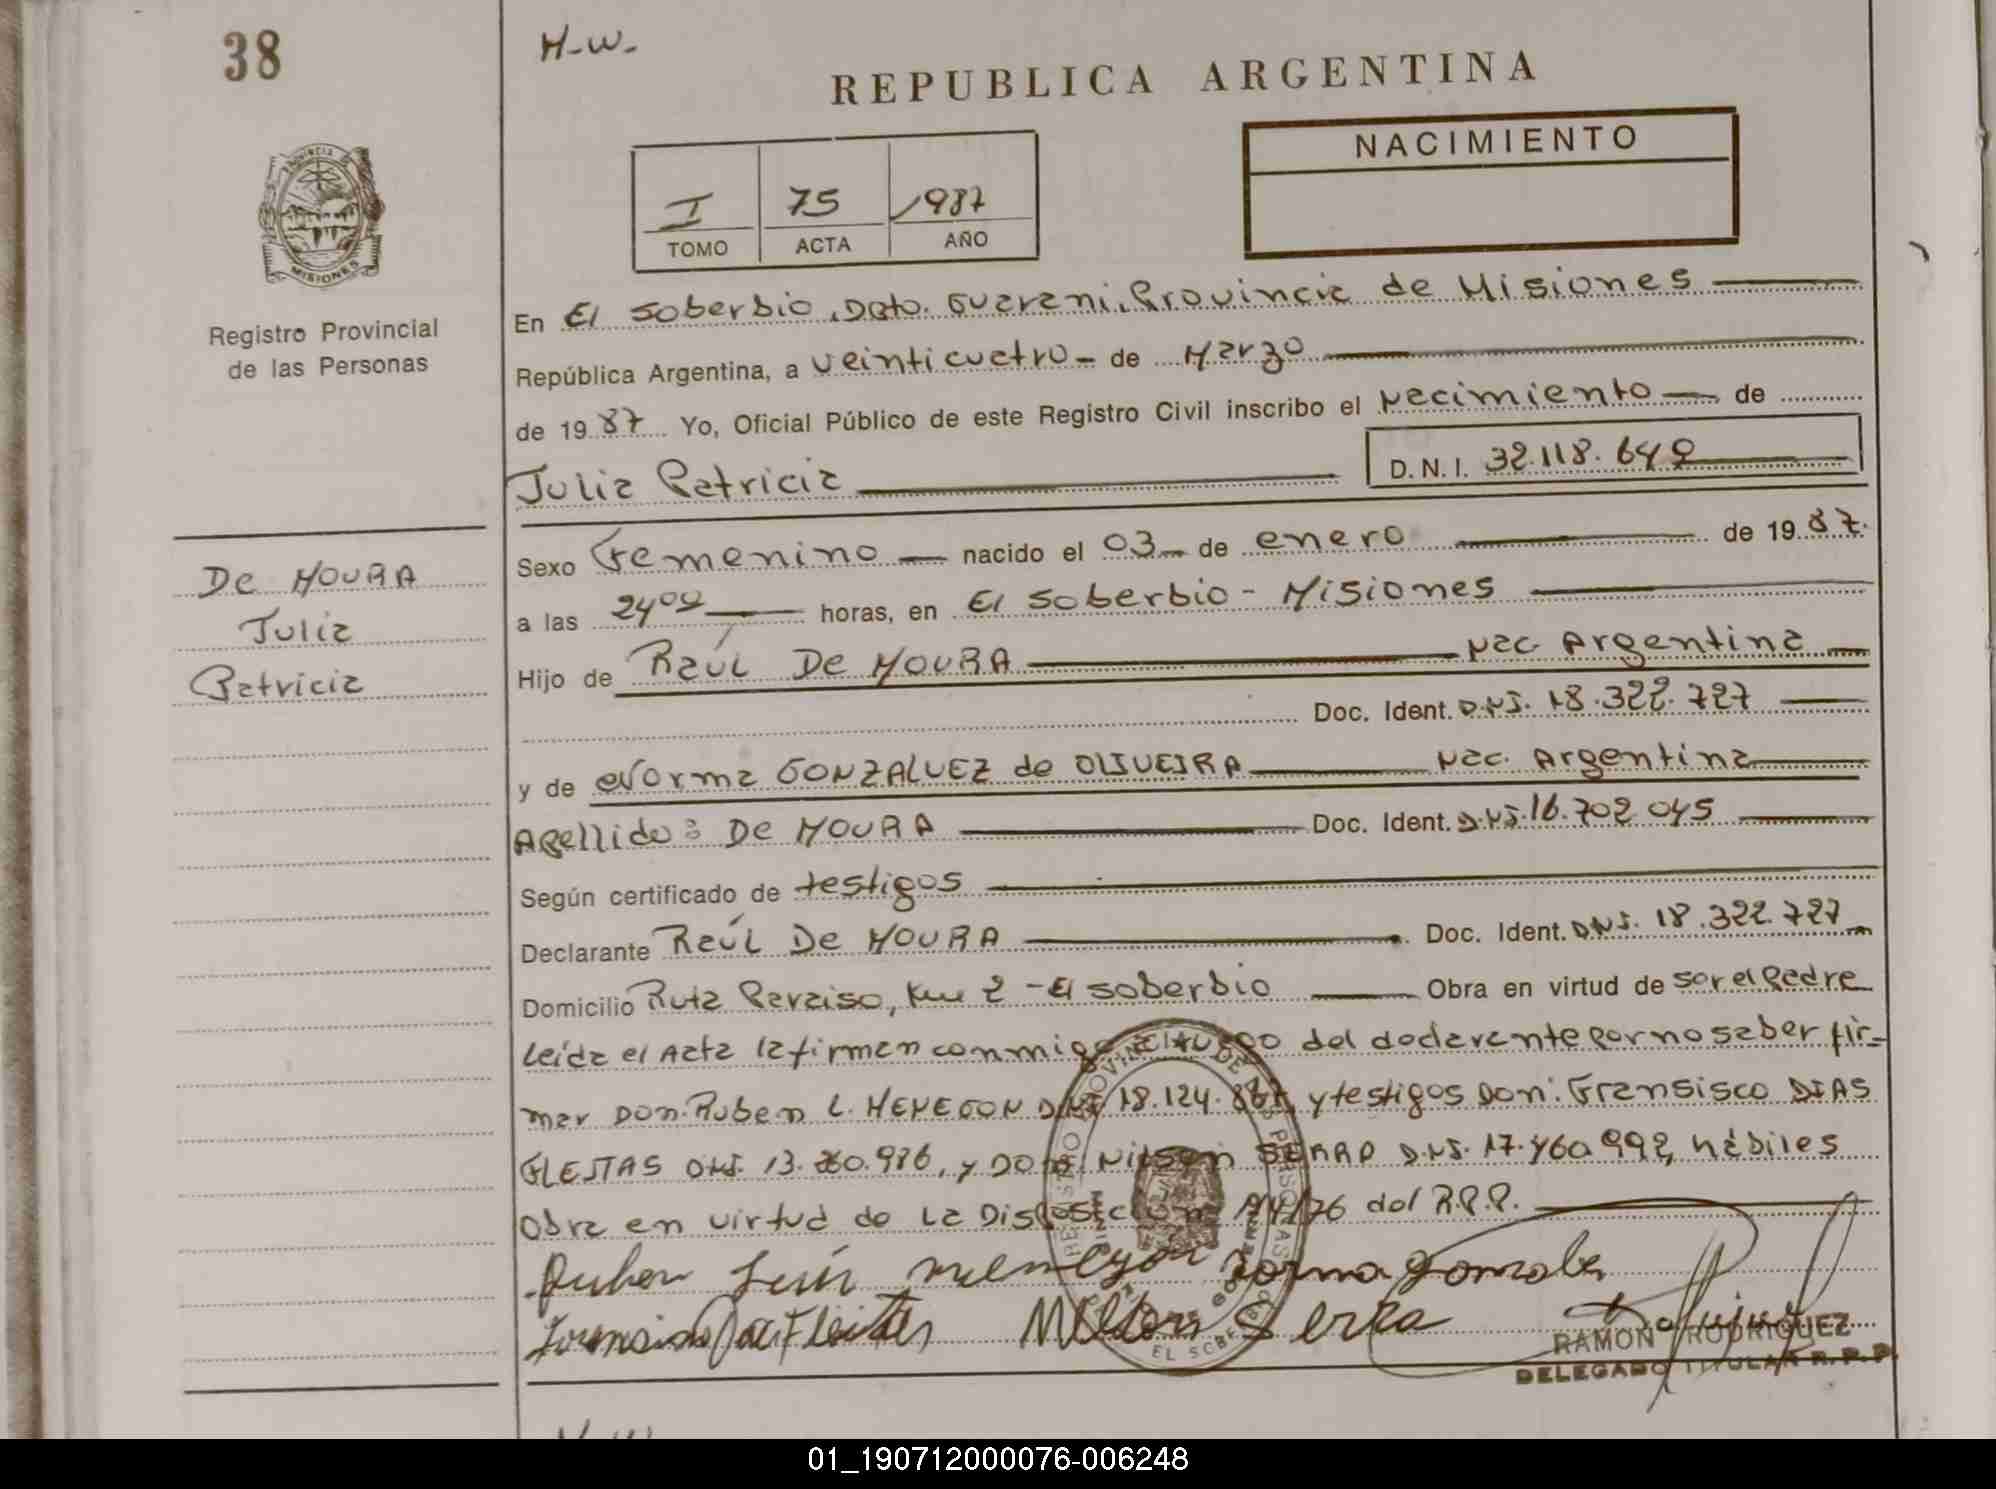 38
H-W-
REPUBLICA ARGENTINA
NACIMIENTO
I 75 1987
TOMO ACTA AÑO
PROVINCIA DE
MISIONES
Registro Provincial
de las Personas
DE MOURA
Julia
Patricia
En El Soberbio, Dpto. Guarani, Provincia de Misiones
República Argentina, a veinticuatro - de Marzo
de 1987 Yo, Oficial Público de este Registro Civil inscribo el Nacimiento de
Julia Patricia D.N.I. 32.118.649
Sexo Femenino nacido el 03 de enero de 1987.
a las 24 00 horas, en El Soberbio - Misiones
Hijo de Raúl DE MOURA Nac. Argentina
Doc. Ident. D.N.I. 18.322.727
y de Norma GONZALVEZ de OLIVEIRA Nac. Argentina
Apellido: DE MOURA Doc. Ident. D.N.I. 16.702.045
Según certificado de testigos
Declarante Raúl DE MOURA Doc. Ident. D.N.I. 18.322.727
Domicilio Ruta Paraiso, Km 2 - El Soberbio Obra en virtud de ser el Padre
Leida el Acta la firman conmigo del declarante por no saber fir=
mar Don: Ruben L. MENEGON D.N.I. 18.124. y testigos Don: Fransisco DIAS
FLEITAS D.N.I. 13. .986, y Don Nilson SERRA D.N.I. 17.460.992, hábiles
Obra en virtud de La Disposicion /76 del R.P.P.
Ruben Luis Menegon Norma Gonzalez
Fleitas Nilson Serra
RAMON RODRIGUEZ
DELEGADO TITULAR R.P.P.
EL SOBERBIO
01_190712000076-006248